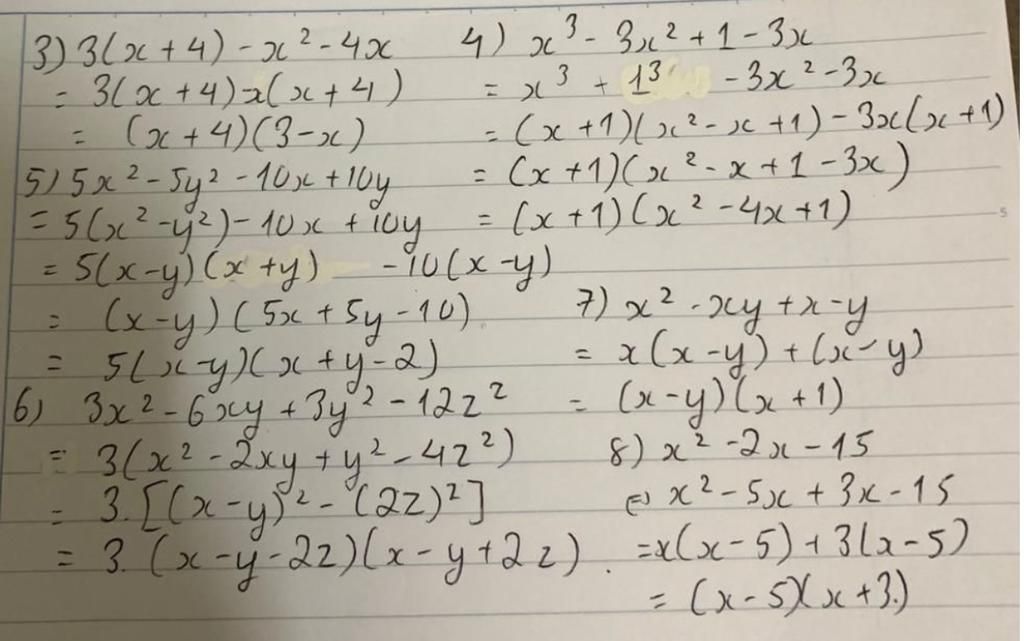 3) 3(x+4) - x² - 4x
= 3(x+4) - x(x+4)
= (x+4)(3-x)
4) x³ - 3x² + 1 - 3x
= x³ + 1³ - 3x² - 3x
= (x+1)(x² - x + 1) - 3x(x+1)
= (x+1)(x² - x + 1 - 3x)
= (x+1)(x² - 4x + 1)
5) 5x² - 5y² - 10x + 10y
= 5(x² - y²) - 10x + 10y
= 5(x-y)(x+y) - 10(x-y)
= (x-y)(5x + 5y - 10)
= 5(x-y)(x+y-2)
6) 3x² - 6xy + 3y² - 12z²
= 3(x² - 2xy + y² - 4z²)
= 3.[(x-y)² - (2z)²]
= 3.(x-y-2z)(x-y+2z).
7) x² - xy + x - y
= x(x-y) + (x-y)
= (x-y)(x+1)
8) x² - 2x - 15
⇔ x² - 5x + 3x - 15
= x(x-5) + 3(x-5)
= (x-5)(x+3.)